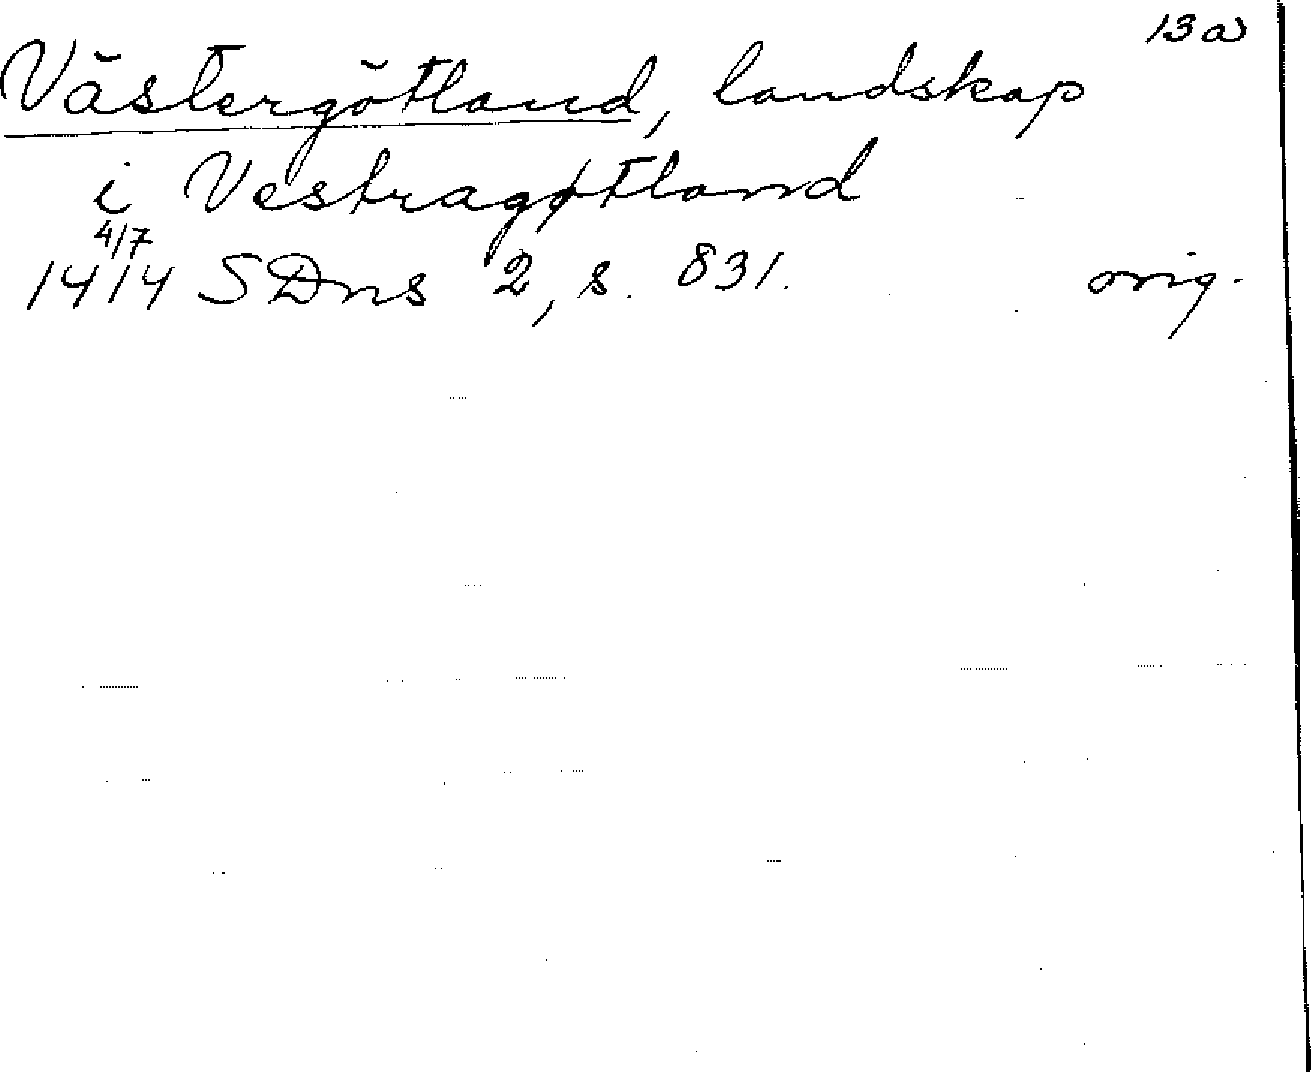 13 a
Västergötland, landskap
i Vestragøtland
4/7
1414 SDns 2, s. 831. orig.